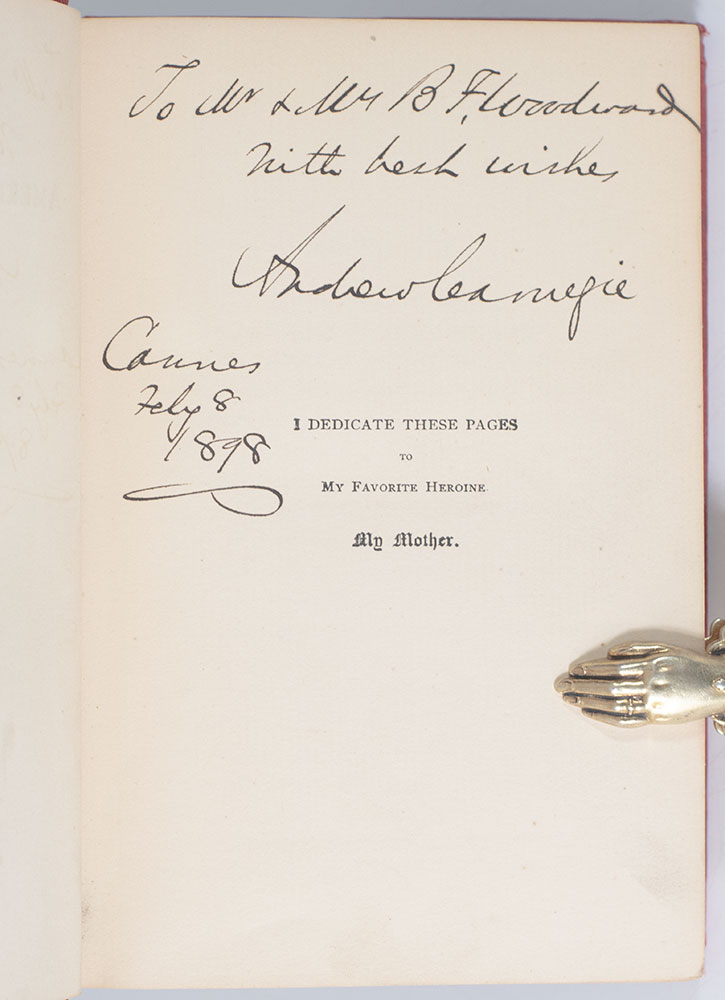 To Mr & Mrs B F. Woodward
With best wishes
Andrew Carnegie
Cannes
Feby 8
1898
I DEDICATE THESE PAGES
TO
MY FAVORITE HEROINE
My Mother.